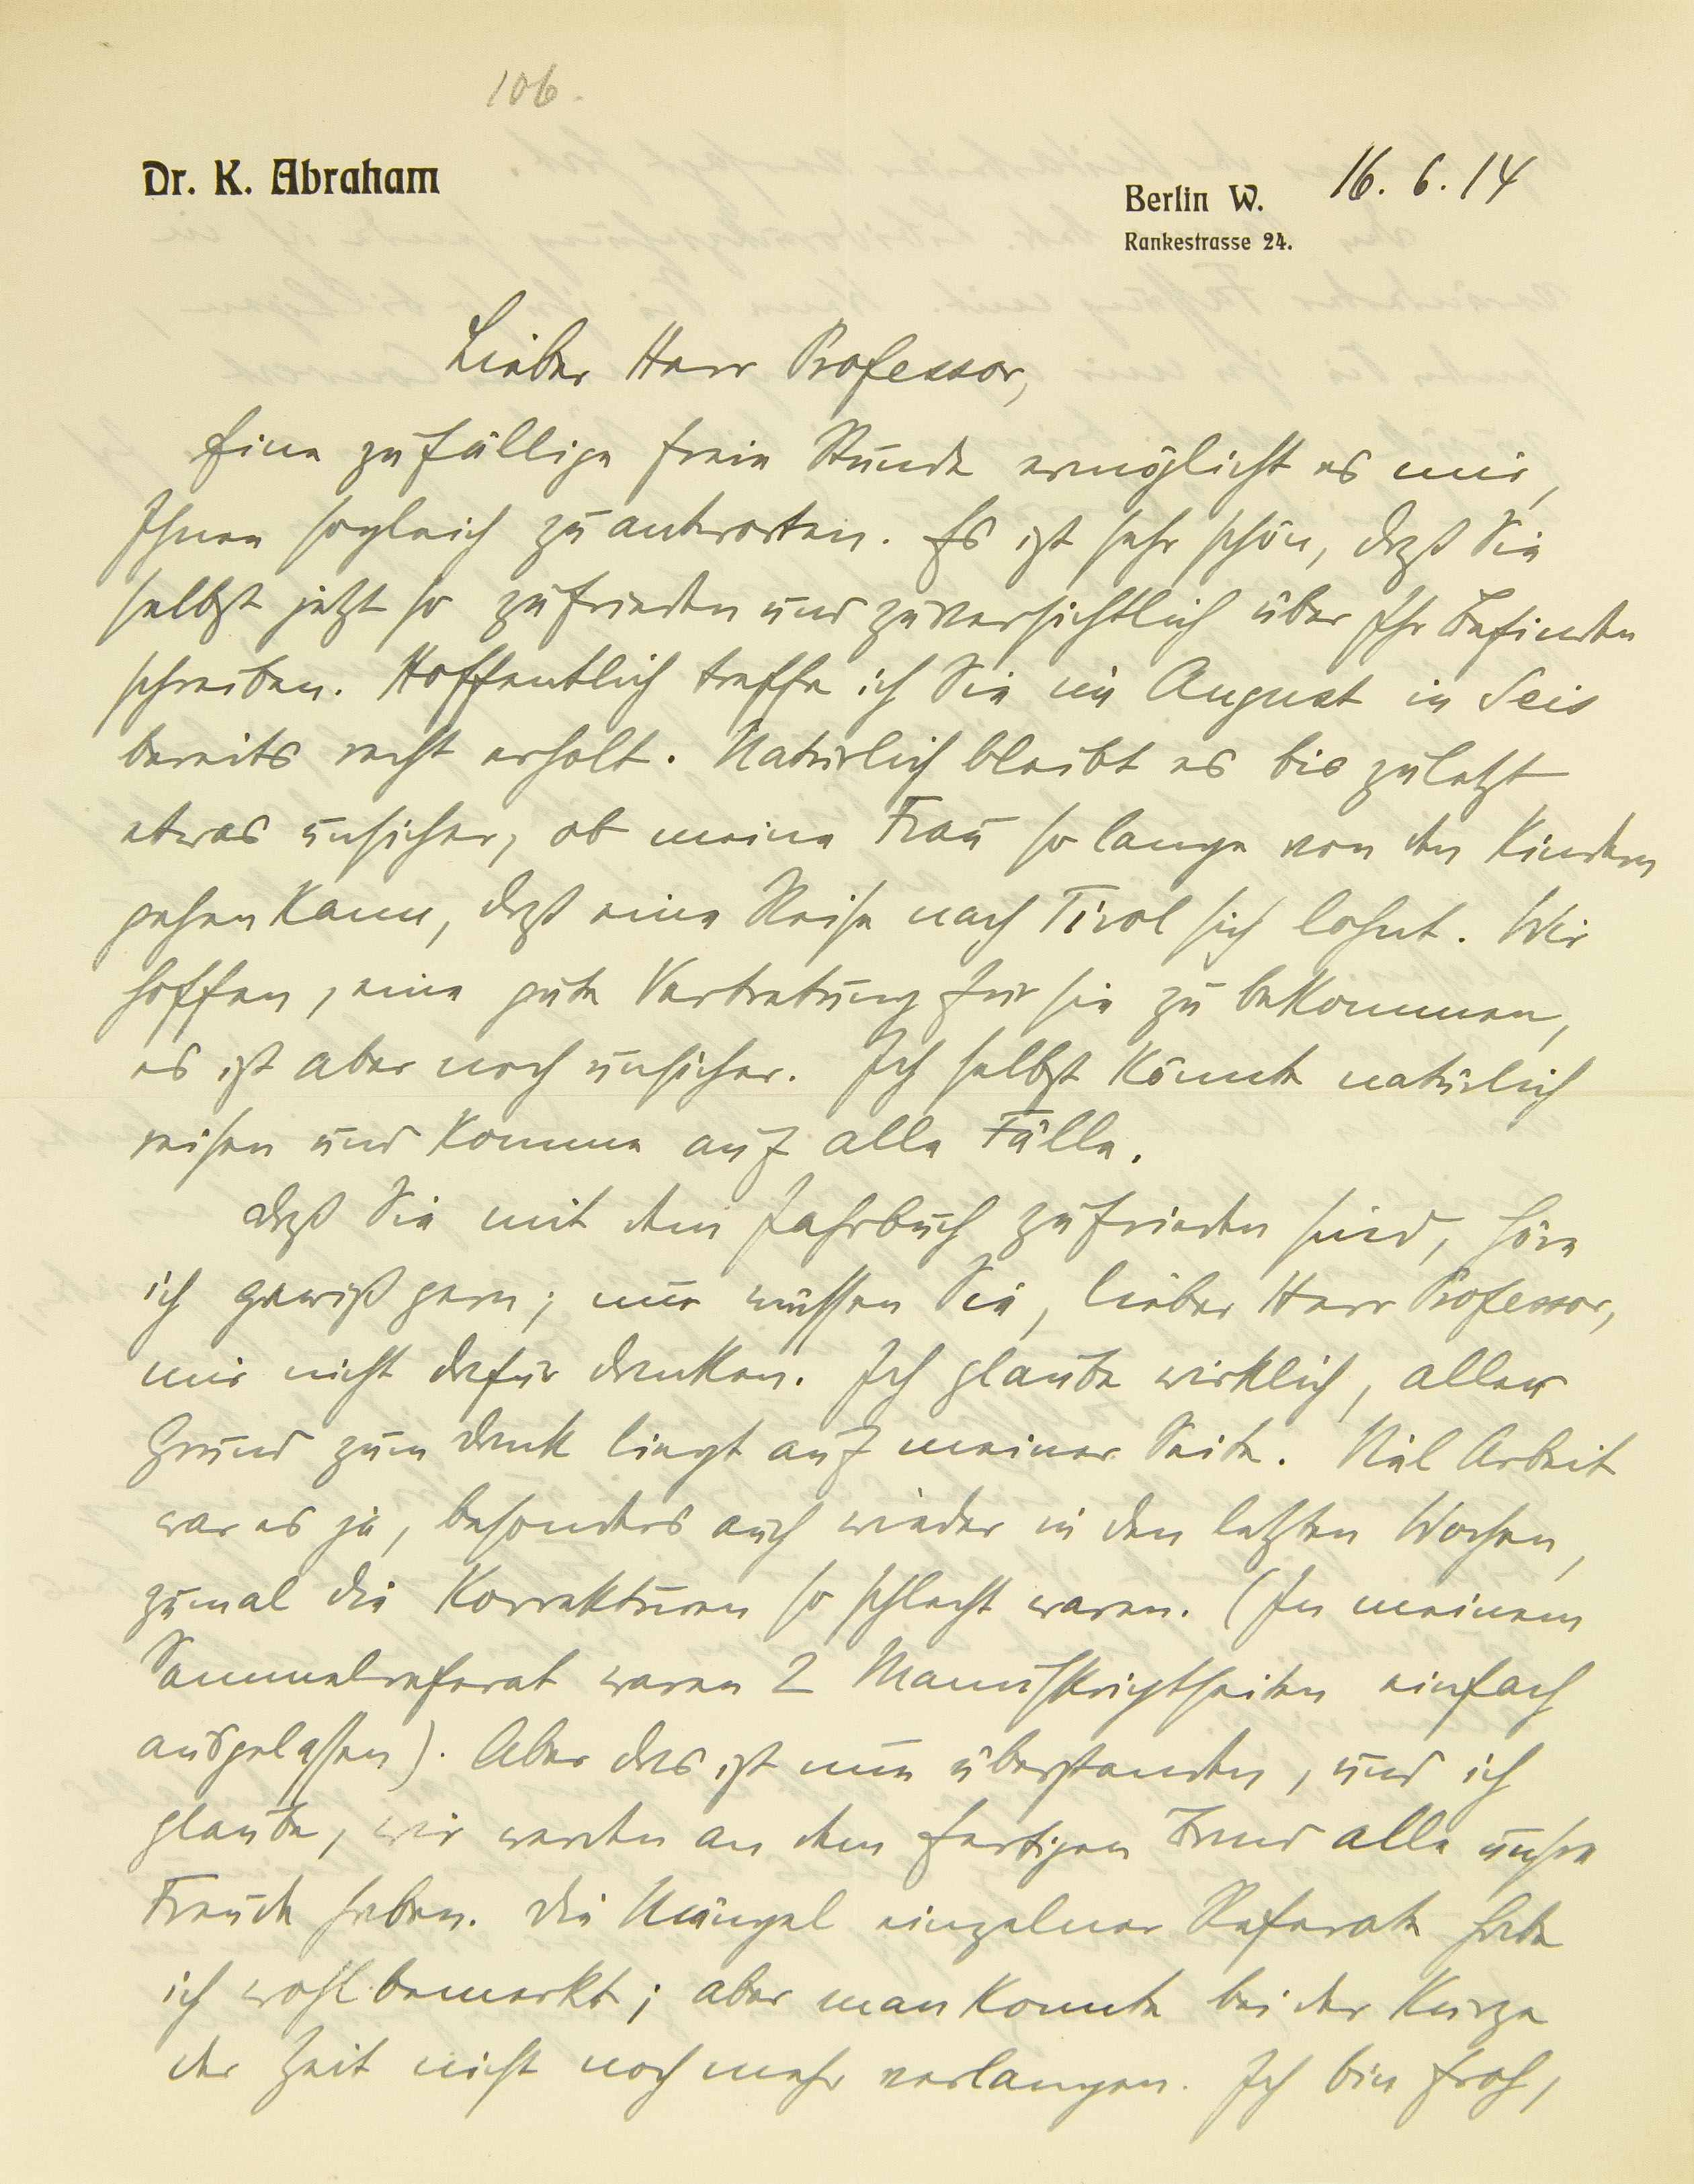 106.
Dr. K. Abraham
Berlin W. 16. 6. 14
Rankestrasse 24.
Lieber Herr Professor,
Eine zufällige freie Stunde ermöglicht es mir,
Ihnen sogleich zu antworten. Es ist sehr schön, daß Sie
selbst jetzt so zufrieden und zuversichtlich über Ihr Befinden
schreiben. Hoffentlich treffe ich Sie im August in Seis
bereits recht erholt. Natürlich bleibt es bis zuletzt
etwas unsicher, ob meine Frau so lange von den Kindern
gehen kann, daß eine Reise nach Tirol sich lohnt. Wir
hoffen, eine gute Vertretung für sie zu bekommen,
es ist aber noch unsicher. Ich selbst könnte natürlich
reisen und komme auf alle Fälle.
Daß Sie mit dem Jahrbuch zufrieden sind, höre
ich gewiß gern; nur müssen Sie, lieber Herr Professor,
mir nicht dafür danken. Ich glaube wirklich, aller
Grund zum Dank liegt auf meiner Seite. Viel Arbeit
war es ja, besonders auch wieder in den letzten Wochen,
zumal die Korrekturen so schlecht waren. (In meinem
Sammelreferat waren 2 Manuskriptseiten einfach
ausgelassen). Aber das ist nun überstanden, und ich
glaube, wir werden an dem fertigen Band alle unsre
Freude haben. Die Mängel einzelner Referate habe
ich wohl bemerkt; aber man konnte bei der Kürze
der Zeit nicht noch mehr verlangen. Ich bin froh,